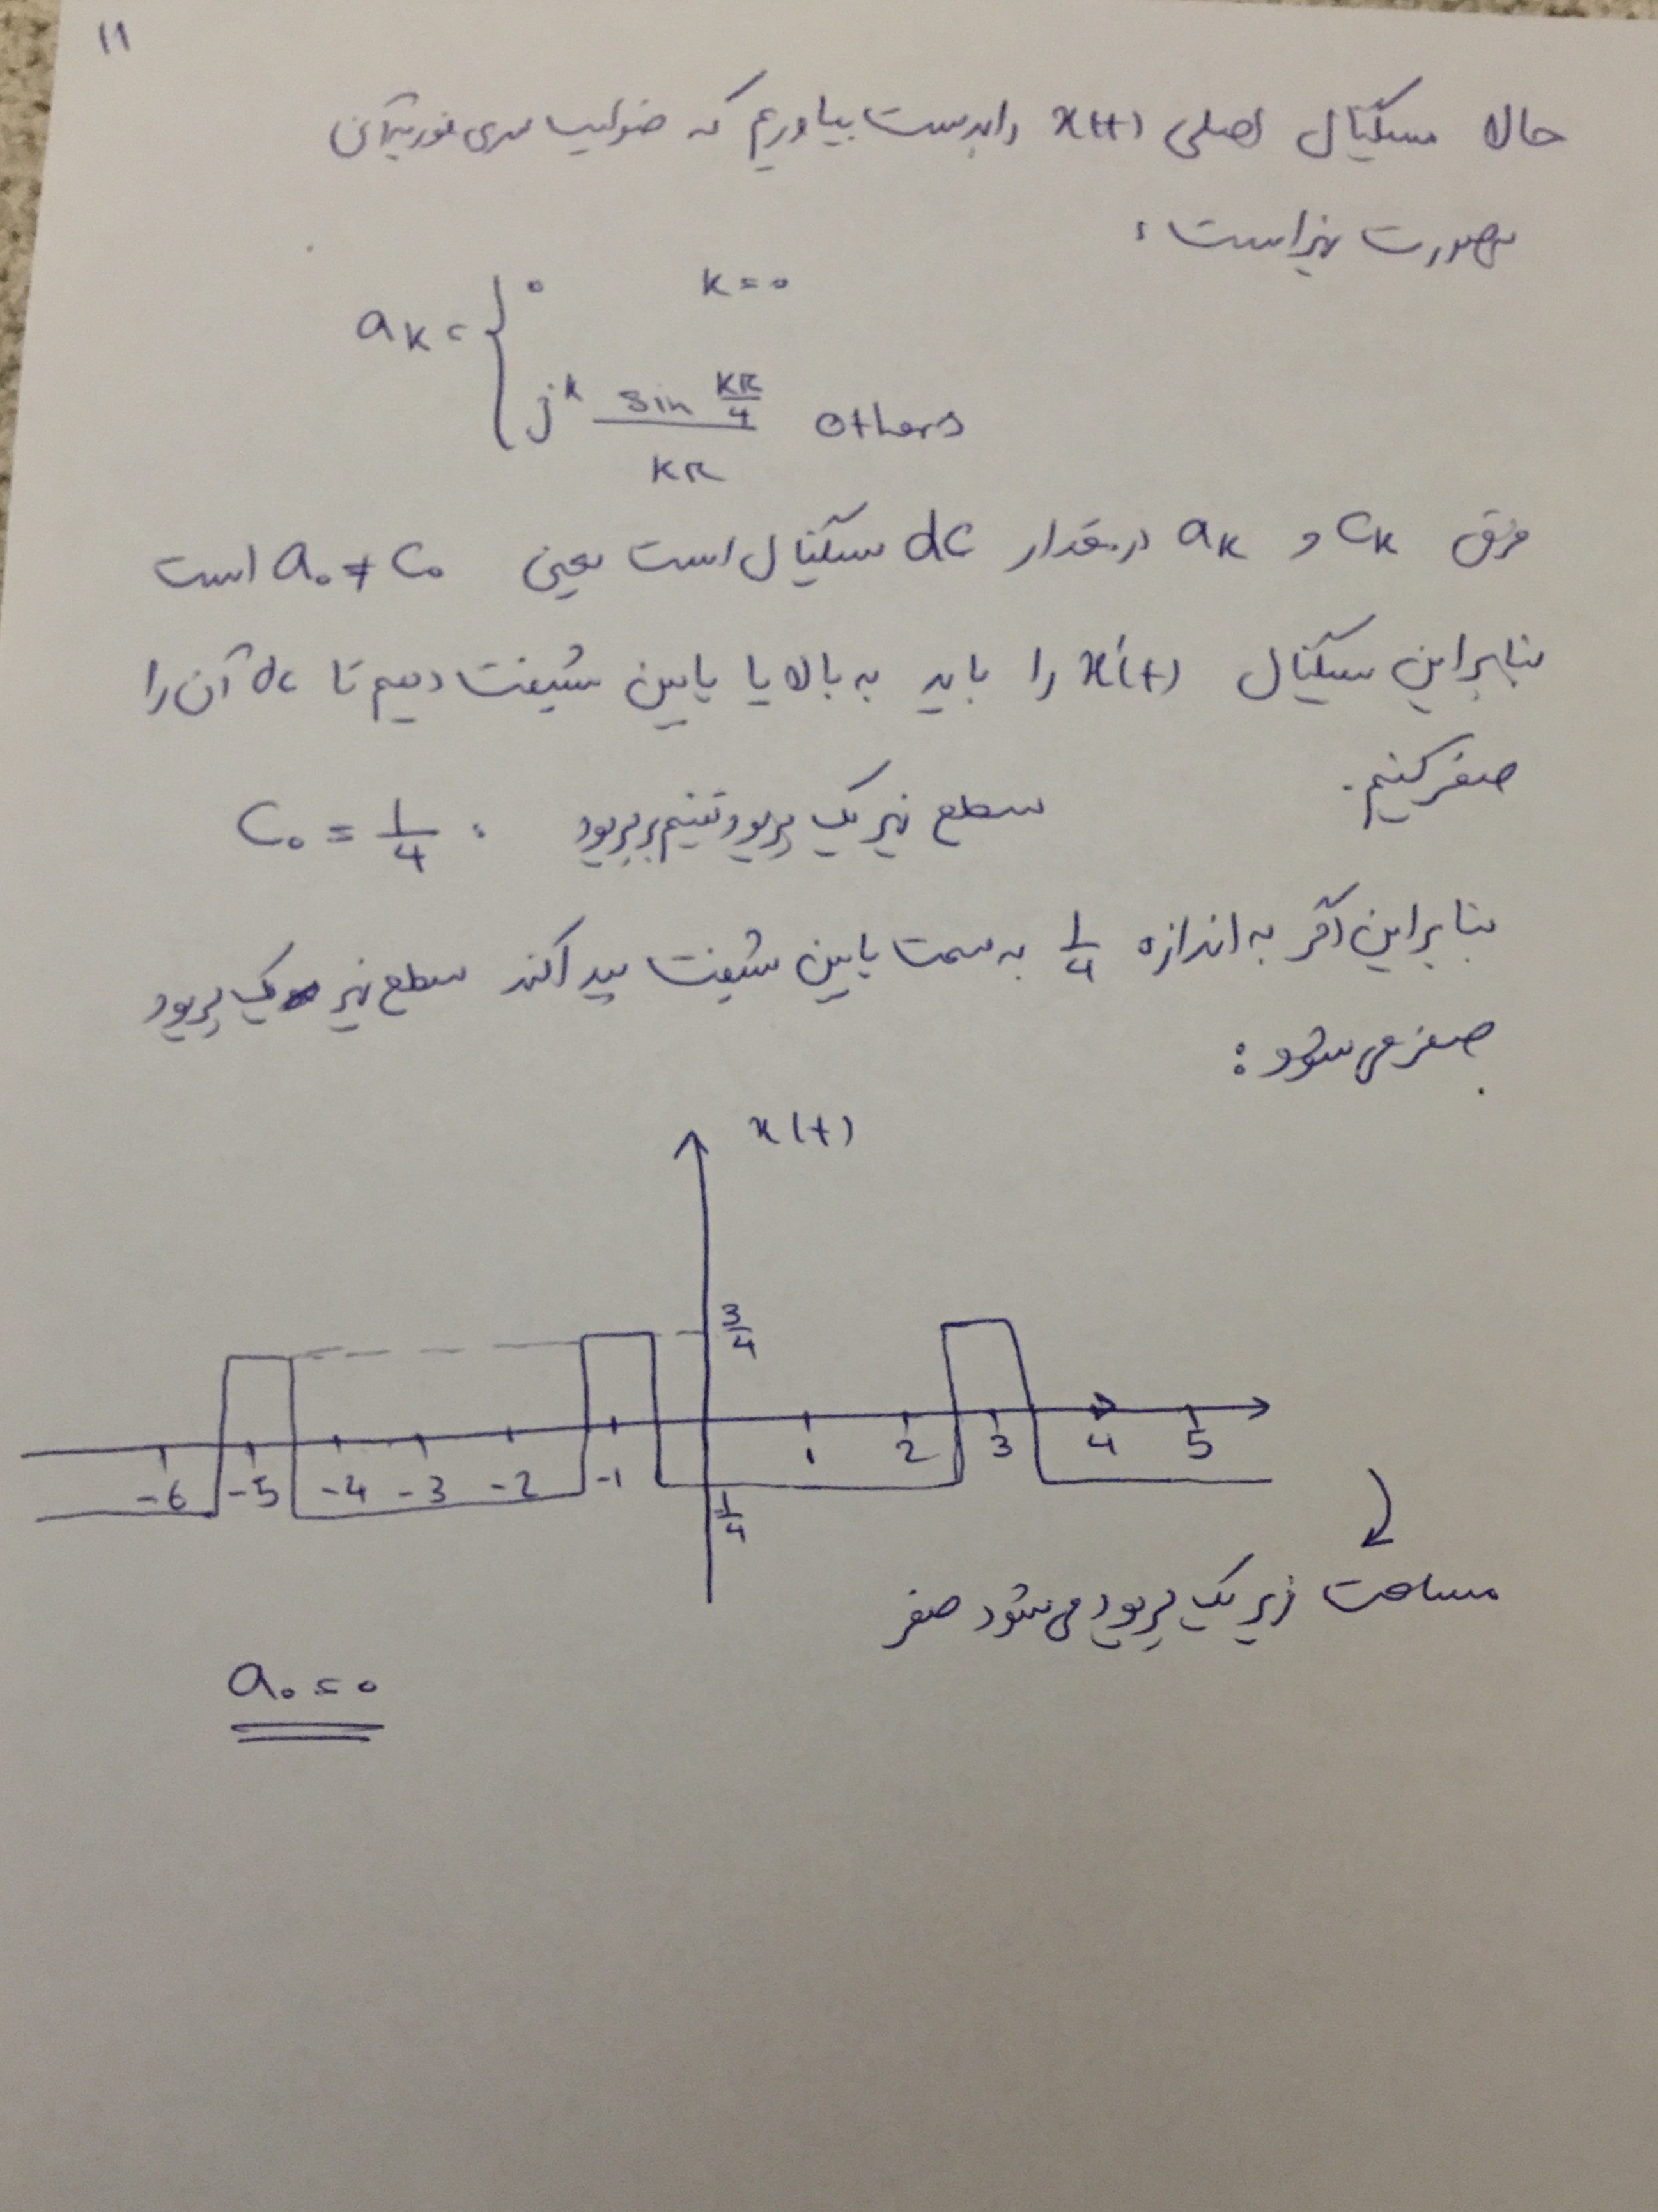 ۱۱
حالا سیگنال اصلی x(t) را بدست بیاوریم که ضرایب سری فوریه آن
بصورت زیر است :
a_k = { 0 k=0
j^k sin kπ/4 / kπ others
فرق c_k و a_k در مقدار dc سیگنال است یعنی a₀ ≠ c₀ است
بنابراین سیگنال x'(t) را باید به بالا یا پایین شیفت دهیم تا dc آن را
صفر کنیم.
سطح زیر یک پریود تقسیم بر پریود : C₀ = 1/4
بنابراین اگر به اندازه 1/4 به سمت پایین شیفت پیدا کند سطح زیر یک پریود
صفر می شود :
x(t)
3/4
-6 -5 -4 -3 -2 -1 1 2 3 4 5
1/4
مساحت زیر یک پریود می شود صفر
a₀ = 0